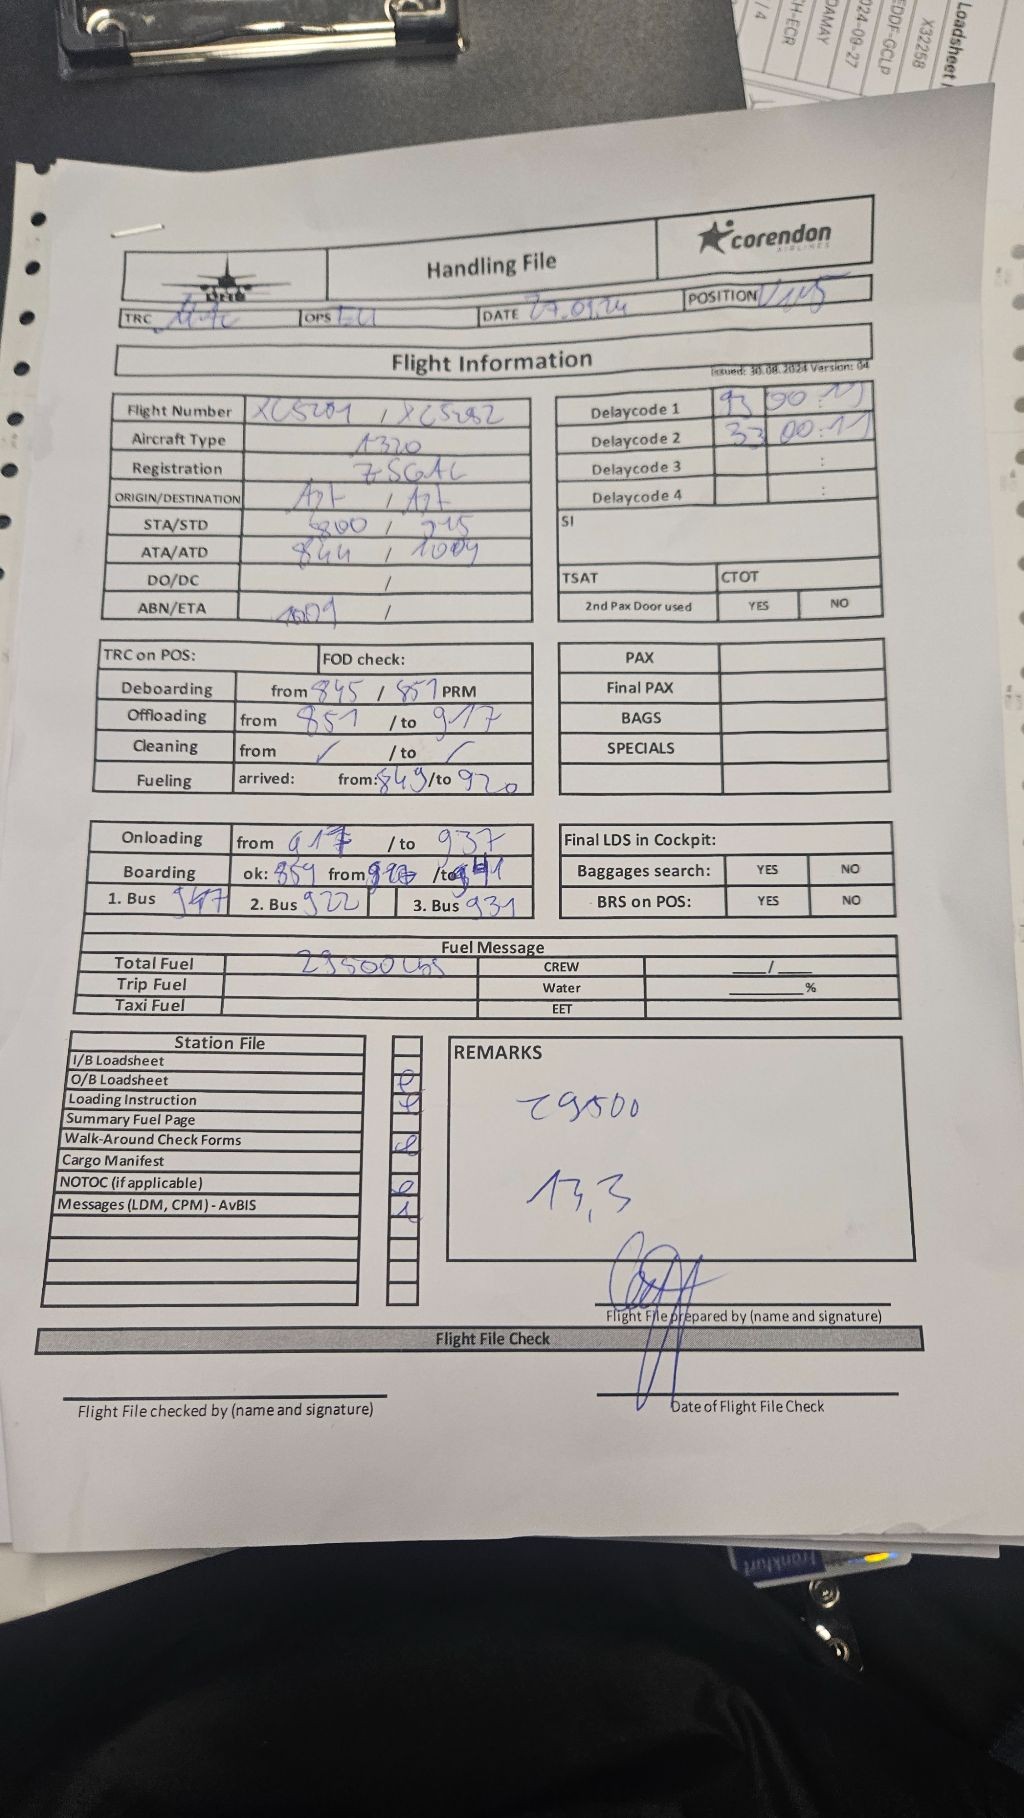 Loadsheet
X3225B
EDDF-GCLP
024-09-27
DAMAY
H-ECR
/ 4
corendon
AIRLINES
Handling File
TRC OPS DATE 27.09.24 POSITION V145
Flight Information
Issued: 30.08.2024 Version: 04
Flight Number / XC5282
Aircraft Type A320
Registration
ORIGIN/DESTINATION AYT / AYT
STA/STD 800 / 915
ATA/ATD 844 / 1009
DO/DC /
ABN/ETA 1009 /
Delaycode 1 93 00:
Delaycode 2 33 00:11
Delaycode 3 :
Delaycode 4 :
SI
TSAT CTOT
2nd Pax Door used YES NO
TRC on POS: FOD check:
Deboarding from 845 / 851 PRM
Offloading from 851 / to 917
Cleaning from / / to /
Fueling arrived: from: 849 /to 920
PAX
Final PAX
BAGS
SPECIALS
Onloading from 917 / to 937
Boarding ok: 859 from /to
1. Bus 2. Bus 922 3. Bus 931
Final LDS in Cockpit:
Baggages search: YES NO
BRS on POS: YES NO
Fuel Message
Total Fuel 29500 Lbs CREW ____/____
Trip Fuel Water ________%
Taxi Fuel EET
Station File
I/B Loadsheet
O/B Loadsheet
Loading Instruction
Summary Fuel Page
Walk-Around Check Forms
Cargo Manifest
NOTOC (if applicable)
Messages (LDM, CPM) - AvBIS
REMARKS
29500
13,3
Flight File prepared by (name and signature)
Flight File Check
Flight File checked by (name and signature)
Date of Flight File Check
Frankfurt